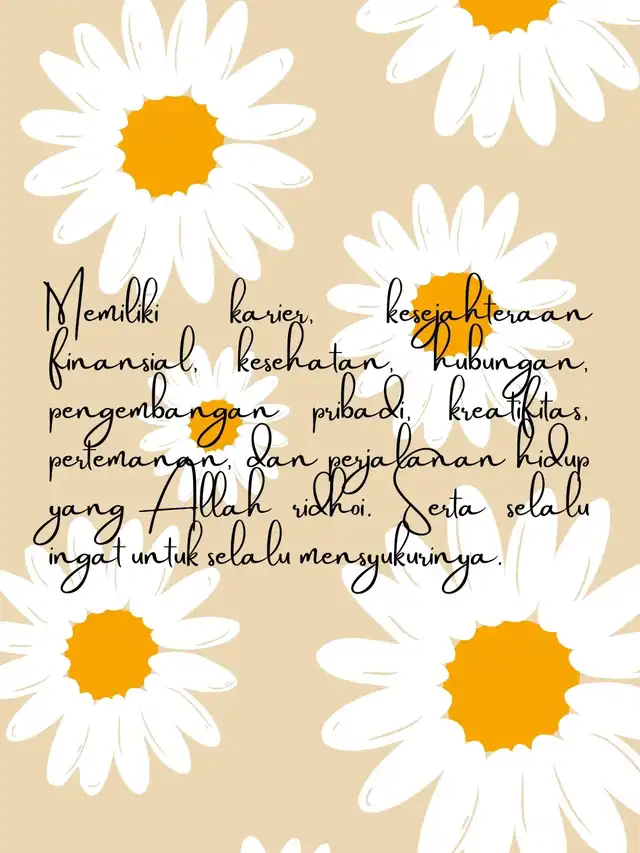 Memiliki karier, kesejahteraan
finansial, kesehatan, hubungan,
pengembangan pribadi, kreatifitas,
pertemanan, dan perjalanan hidup
yang Allah ridhoi. Serta selalu
ingat untuk selalu mensyukurinya.